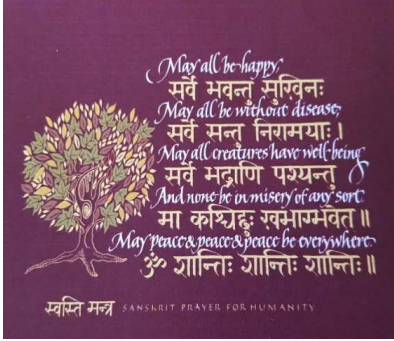 May all be happy,
सर्वे भवन्तु सुखिनः
May all be without disease;
सर्वे सन्तु निरामयाः।
May all creatures have well-being
सर्वे भद्राणि पश्यन्तु
And none be in misery of any sort.
मा कश्चिद्दुःखभाग्भवेत्॥
May peace & peace & peace be everywhere.
ॐ शान्तिः शान्तिः शान्तिः॥
स्वस्ति मन्त्र SANSKRIT PRAYER FOR HUMANITY